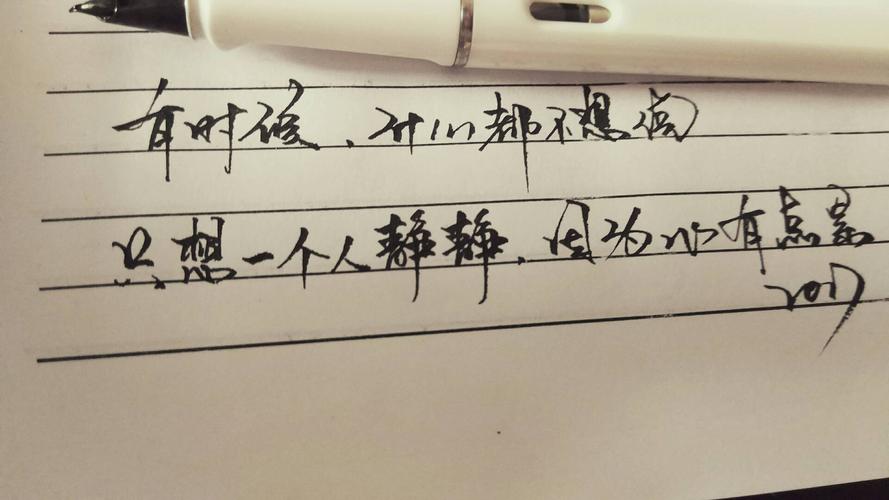 有时候、什么都不想
只想一个人静静、因为心有点累
2017